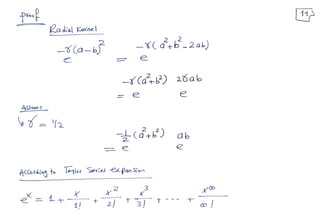 proof
11
Radial Kernel
e^{-γ(a-b)^2} = e^{-γ(a^2+b^2-2ab)}
= e^{-γ(a^2+b^2)} e^{2γab}
Assume
↳ γ = 1/2
= e^{-1/2(a^2+b^2)} e^{ab}
According to Taylor Series expansion
e^x = 1 + x/1! + x^2/2! + x^3/3! + ... + x^∞/∞!